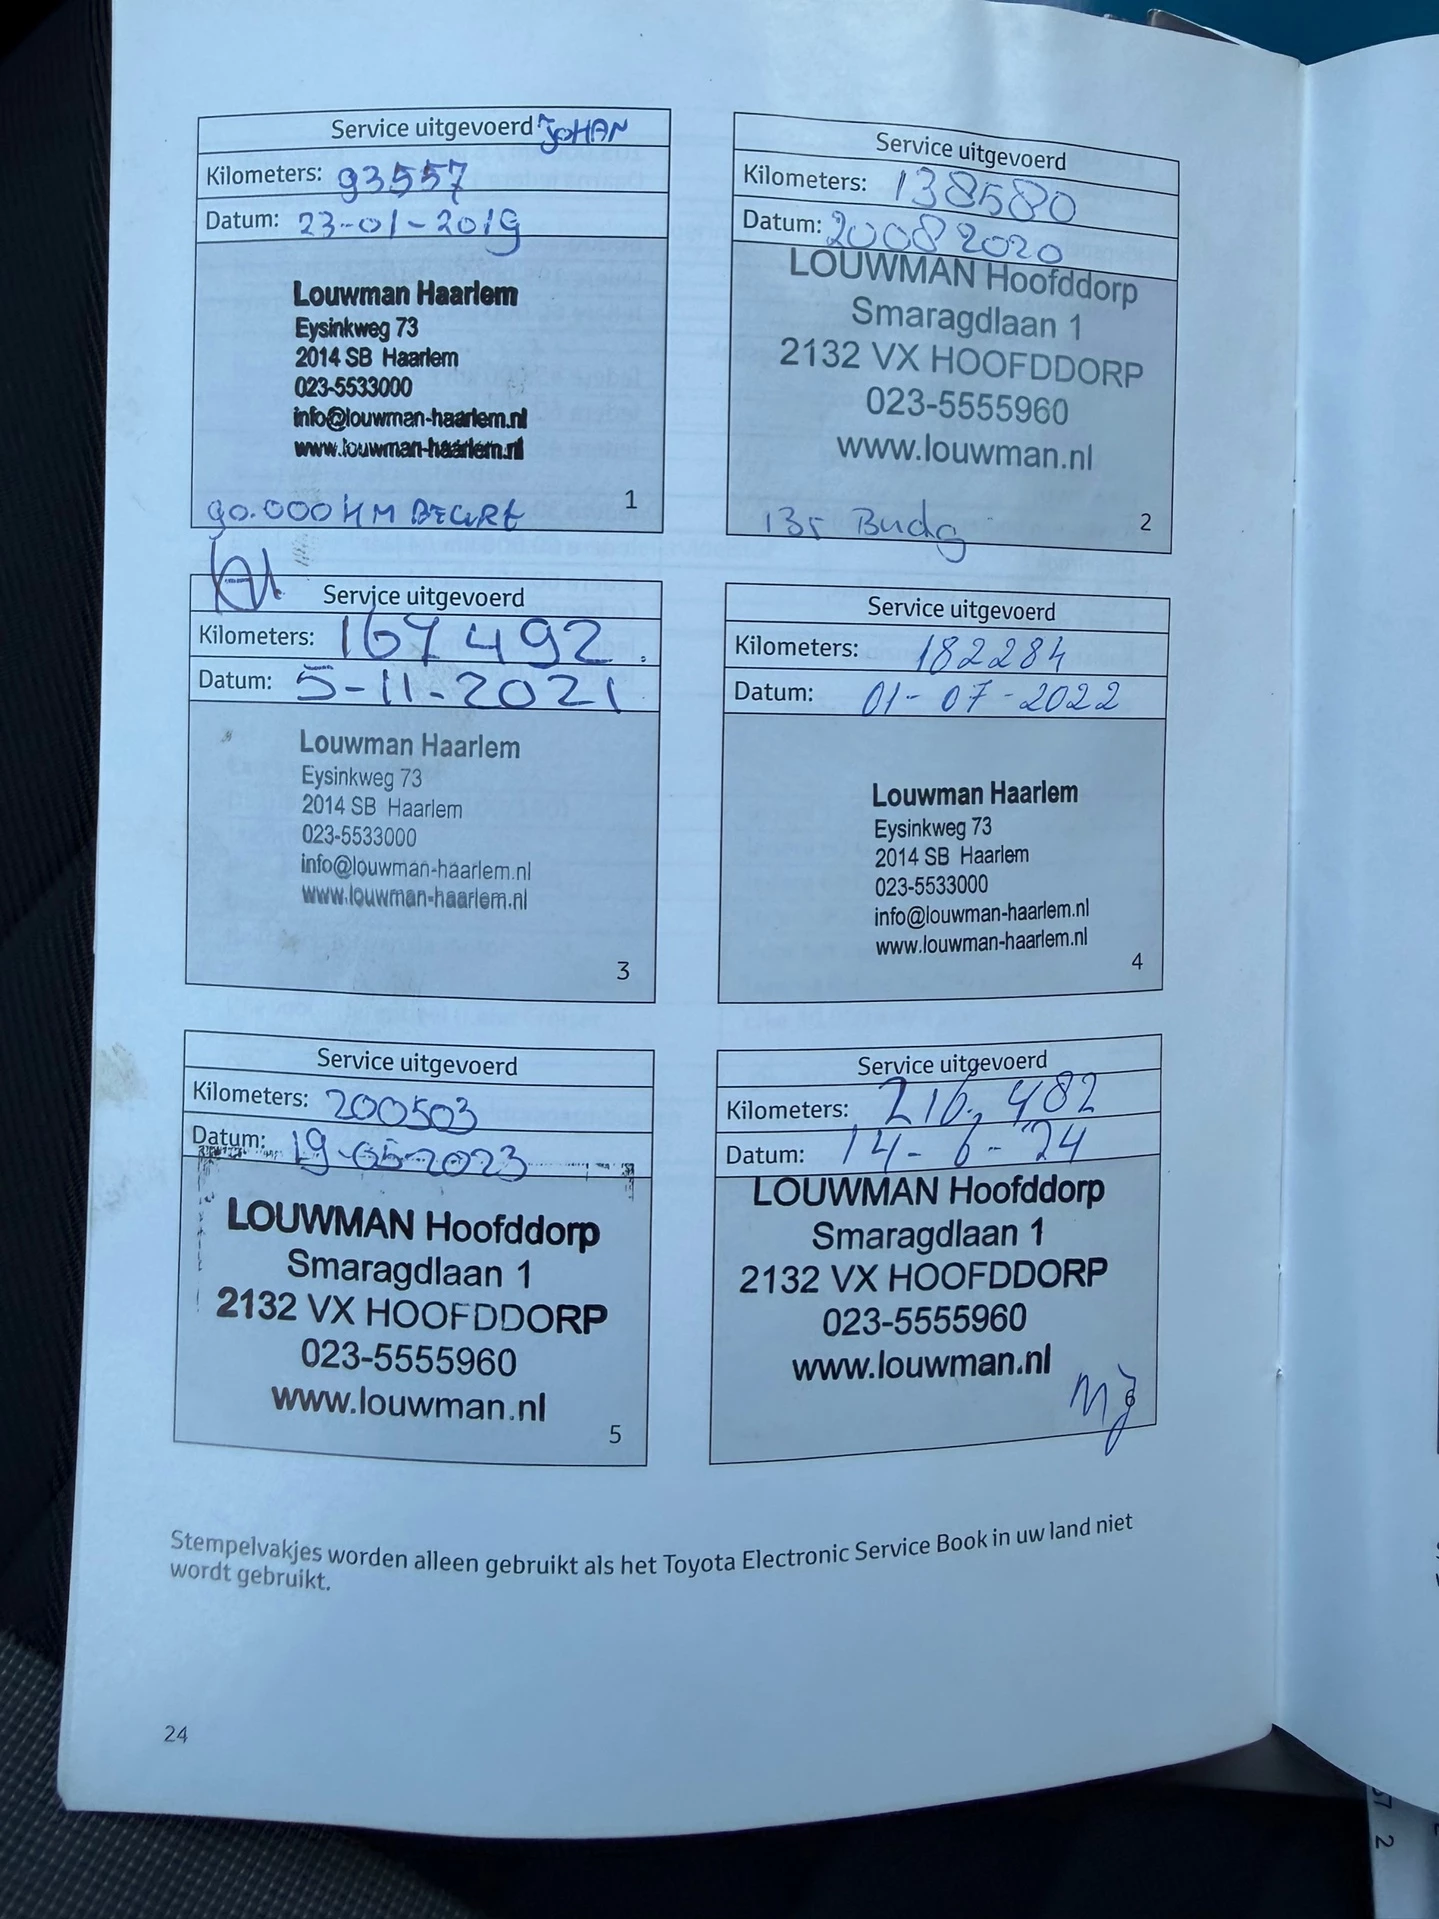 Service uitgevoerd JOHAN
Kilometers: 93557
Datum: 23-01-2019
Louwman Haarlem
Eysinkweg 73
2014 SB Haarlem
023-5533000
info@louwman-haarlem.nl
www.louwman-haarlem.nl
90.000 KM BEURT
1
Service uitgevoerd
Kilometers: 138580
Datum: 20082020
LOUWMAN Hoofddorp
Smaragdlaan 1
2132 VX HOOFDDORP
023-5555960
www.louwman.nl
2
Service uitgevoerd
Kilometers: 167492.
Datum: 5-11-2021
Louwman Haarlem
Eysinkweg 73
2014 SB Haarlem
023-5533000
info@louwman-haarlem.nl
www.louwman-haarlem.nl
3
Service uitgevoerd
Kilometers: 182284
Datum: 01-07-2022
Louwman Haarlem
Eysinkweg 73
2014 SB Haarlem
023-5533000
info@louwman-haarlem.nl
www.louwman-haarlem.nl
4
Service uitgevoerd
Kilometers: 200503
Datum: 19-05-2023
LOUWMAN Hoofddorp
Smaragdlaan 1
2132 VX HOOFDDORP
023-5555960
www.louwman.nl
5
Service uitgevoerd
Kilometers: 216,482
Datum: 14-6-'24
LOUWMAN Hoofddorp
Smaragdlaan 1
2132 VX HOOFDDORP
023-5555960
www.louwman.nl
6
Stempelvakjes worden alleen gebruikt als het Toyota Electronic Service Book in uw land niet
wordt gebruikt.
24